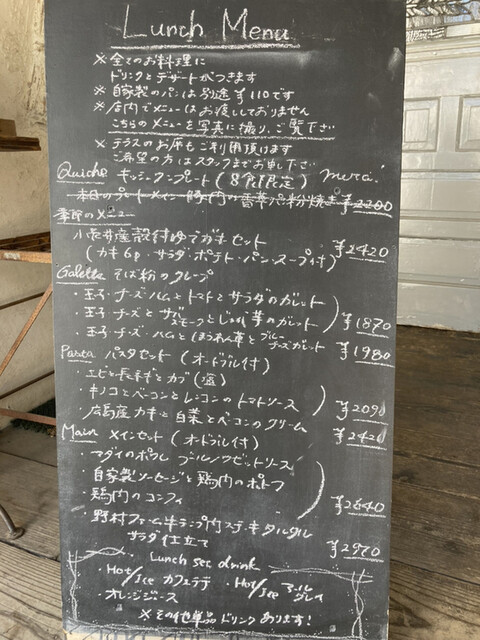 Lunch Menu
※全てのお料理に
ドリンクとデザートがつきます
※自家製のパンは別途¥110です
※店内でメニューはお渡ししておりません
こちらのメニューを写真に撮り、ご覧下さい
※テラスのお席もご利用頂けます
ご希望の方はスタッフまでお申し下さい
Quiche キッシュランプレート(8食限定) merci.
本日のプレートメイン 豚肉の香草パン粉焼き ¥2200
季節のメニュー
小長井産殻付ゆでガキセット
(カキ6p・サラダ・ポテト・パン・スープ付) ¥2420
Galette そば粉のクレープ
・玉子・チーズ・ハムとトマトとサラダのガレット
・玉子・チーズとサバスモークとじゃが芋のガレット ¥1870
・玉子・チーズ・ハムとほうれん草とブルーチーズガレット ¥1980
Pasta パスタセット(オードブル付)
・エビと長ネギとカブ(塩)
・キノコとベーコンとレンコンのトマトソース ¥2090
・広島産カキと白菜とベーコンのクリーム ¥2420
Main メインセット(オードブル付)
・マダイのポワレ ブールノワゼットソース
・自家製ソーセージと鶏肉のポトフ
・鶏肉のコンフィ ¥2640
・野村ファーム牛ランプ肉ステキ タルタル
サラダ仕立て ¥2970
・Lunch set drink
・Hot/Ice カフェラテ ・Hot/Ice アールグレイ
・オレンジジュース
※その他単品ドリンクあります!